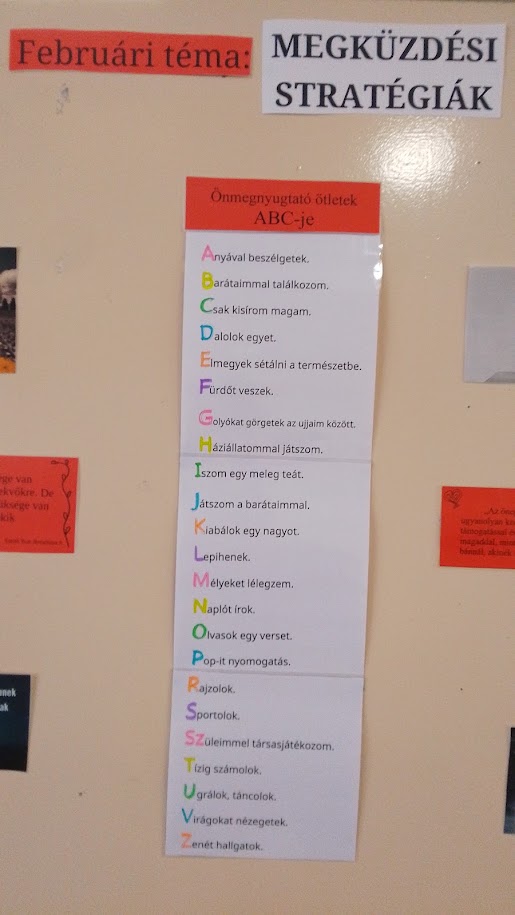 Februári téma:
MEGKÜZDÉSI
STRATÉGIÁK
Önmegnyugtató ötletek
ABC-je
Anyával beszélgetek.
Barátaimmal találkozom.
Csak kisírom magam.
Dalolok egyet.
Elmegyek sétálni a természetbe.
Fürdőt veszek.
Golyókat görgetek az ujjaim között.
Háziállatommal játszom.
Iszom egy meleg teát.
Játszom a barátaimmal.
Kiabálok egy nagyot.
Lepihenek.
Mélyeket lélegzem.
Naplót írok.
Olvasok egy verset.
Pop-it nyomogatás.
Rajzolok.
Sportolok.
Szüleimmel társasjátékozom.
Tízig számolok.
Ugrálok, táncolok.
Virágokat nézegetek.
Zenét hallgatok.
ége van
ekvőkre. De
üksége van
kik
„Az öne
ugyanolyan
támogatással
magaddal, mint
akinek
nek
ak